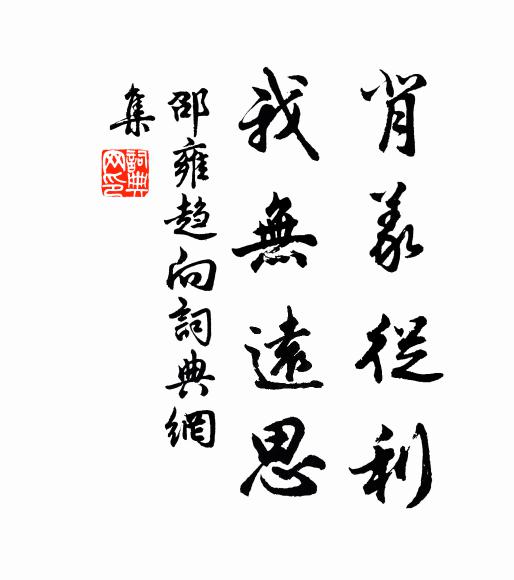 肯義從利
我無遠思
邵雍趋向詞典網
集
詞典
网印